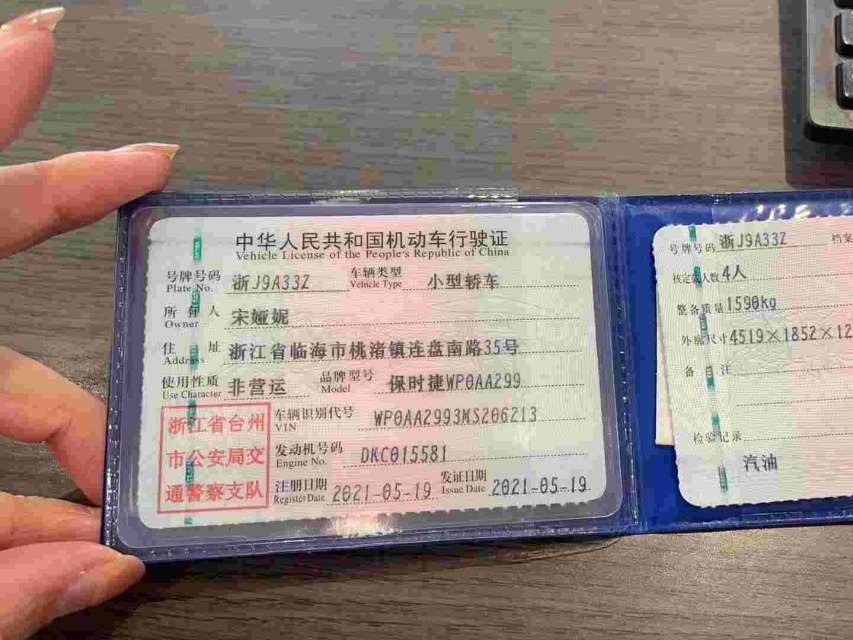 中华人民共和国机动车行驶证
Vehicle License of the People's Republic of China
号牌号码 浙J9A33Z 车辆类型 小型轿车
Plate No. Vehicle Type
所有人 宋娅妮
Owner
住址 浙江省临海市桃渚镇连盘南路35号
Address
使用性质 非营运 品牌型号 保时捷WP0AA299
Use Character Model
浙江省台州
市公安局交
通警察支队
车辆识别代号 WP0AA2993MS206213
VIN
发动机号码 DKC015581
Engine No.
注册日期 2021-05-19 发证日期 2021-05-19
Register Date Issue Date
号牌号码 浙J9A33Z 档案
核定载人数 4人
整备质量 1590kg
外廓尺寸 4519×1852×12
备注
检验记录
汽油